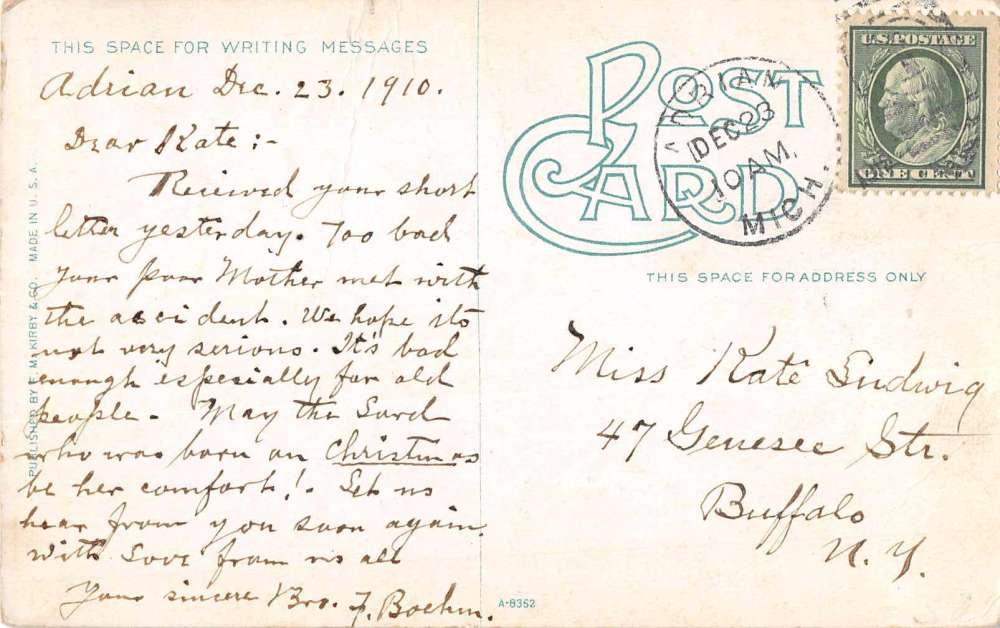 THIS SPACE FOR WRITING MESSAGES
Adrian Dec. 23. 1910.
Dear Kate :-
Recieved your short
letter yesterday. Too bad
your poor Mother met with
the accident. We hope its
not very serious. It's bad
enough especially for old
people - May the Lord
who was born on Christmas
be her comfort! - Let us
hear from you soon again.
With Love from us all
Your sincere Bro. F. Boehm.
PUBLISHED BY F. M. KIRBY & CO. MADE IN U. S. A.
POST
CARD
ADRIAN
DEC 23
10 AM
MICH.
U.S. POSTAGE
ONE CENT
THIS SPACE FOR ADDRESS ONLY
Miss Kate Ludwig
47 Genesee Str.
Buffalo
N. Y.
A-8352